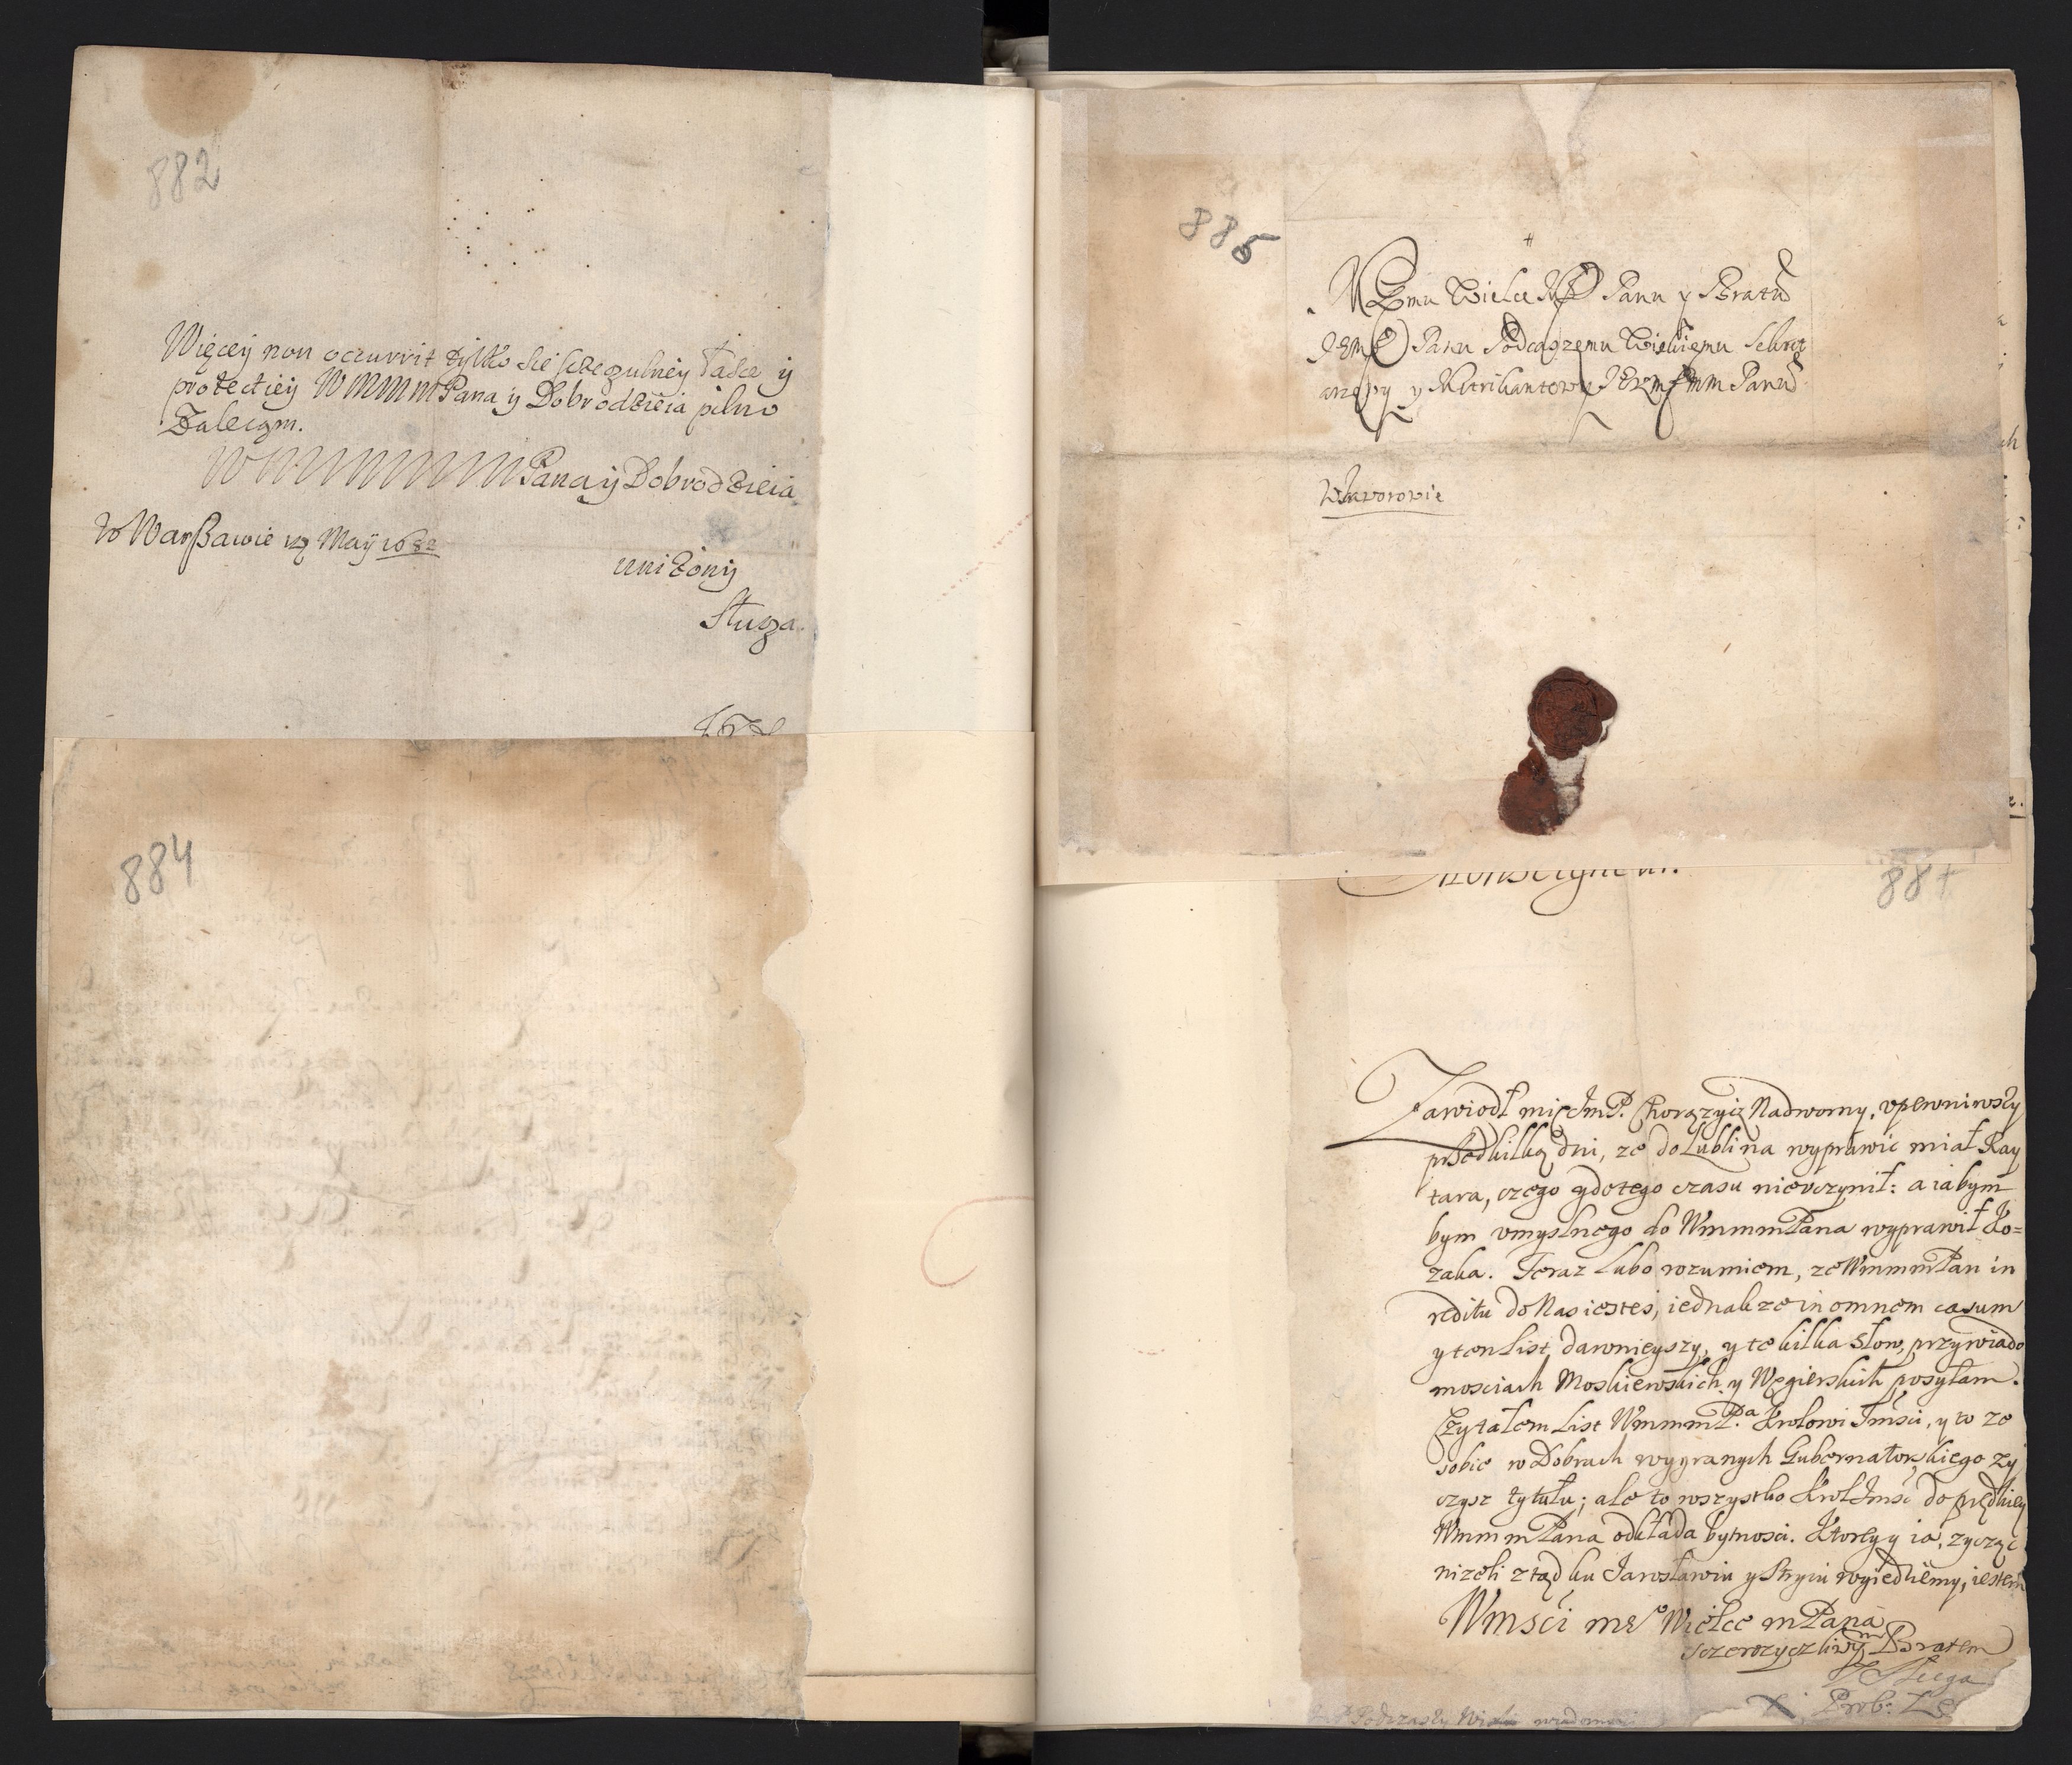 882
Więcey non occurrit tylko się szczegulney łasce y
protectiey WMMMPana y Dobrodzieia pilno
Zalecam.
WMMMMPana y Dobrodzieia
w Warßawie May 1682
uniżony
Sługa
884
885
Wielce Panu y Bratu
Panu Podczaszemu Wielkiemu
y Panu
WJaworowie
Monseigneur.
887
Zawiodł mię JmP. Chorązyiz Nadworny, vpewniwszy
przed kilką dni, ze do Lublina wyprawic miał Ray
tara, czego y do tego czasu nieuczynił: a ia bym
bym vmyslnego do WmmmPana wyprawił Ko=
zaka. Teraz lubo rozumiem, ze WmmmPan in
reditu do Nas iestes, iednakze in omnem casum
y ten list dawnieyszy, y te kilka słow, przy wiado
mosciach Moskiewskich y Węgierskich posyłam.
Czytałem list WmmmP.a Krolowi Jmsci, y to ze
sobie w Dobrach wygranych Gubernatorskiego zy
czysz tytułu; ale to wszystko Krol Jmsc do prędkiey
WmmmPana odkłada bytnosci. Ktorey y ia, zycząc
nizeli ztąd ku Jarosławiu y Stryiu wyiedziemy, iestem
Wmsci me° Wielce mPana
szczerozyczliwym Bratem
Prob:
Podczaszy wiadomosci